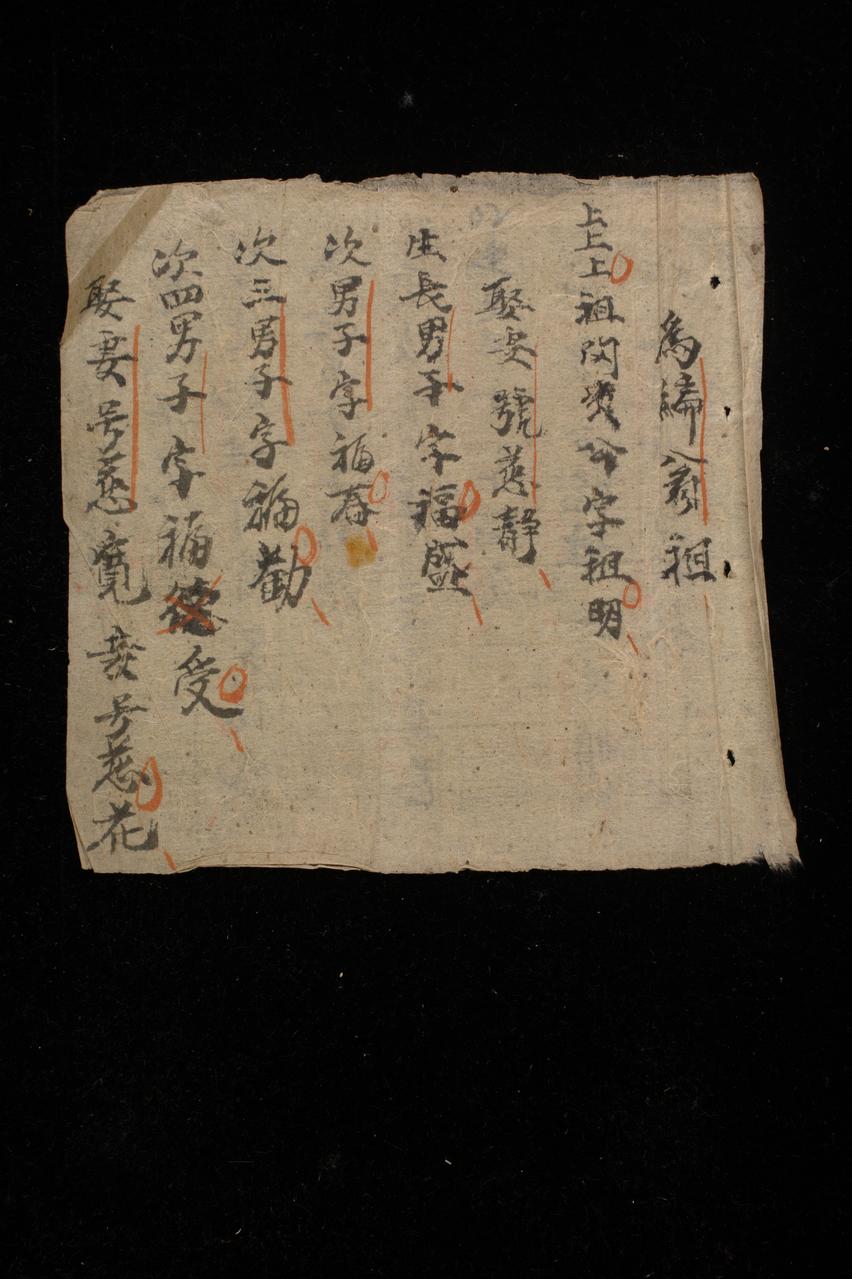 為綿翁祖
上上上祖閃貴公字祖明
娶妾號慈静
生長男子字福盛
次男子字福春
次三男子字福勸
次四男子字福德受
娶妻号慈寬妾号慈花